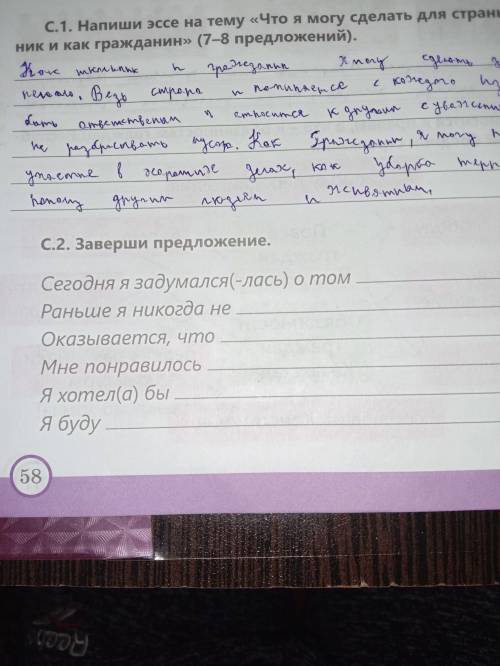 С.1. Напиши эссе на тему «Что я могу сделать для стран
ник и как гражданин» (7–8 предложений).
Как школьник и гражданин я могу сделать
немало. Ведь страна и начинается с каждого из
быть ответственным и относится к другим с уважени
не разбрасывать мусор. Как Гражданин, я могу п
участие в хороших делах, как уборка терр
помощ другим людям и животным.
С.2. Заверши предложение.
Сегодня я задумался(-лась) о том
Раньше я никогда не
Оказывается, что
Мне понравилось
Я хотел(а) бы
Я буду
58